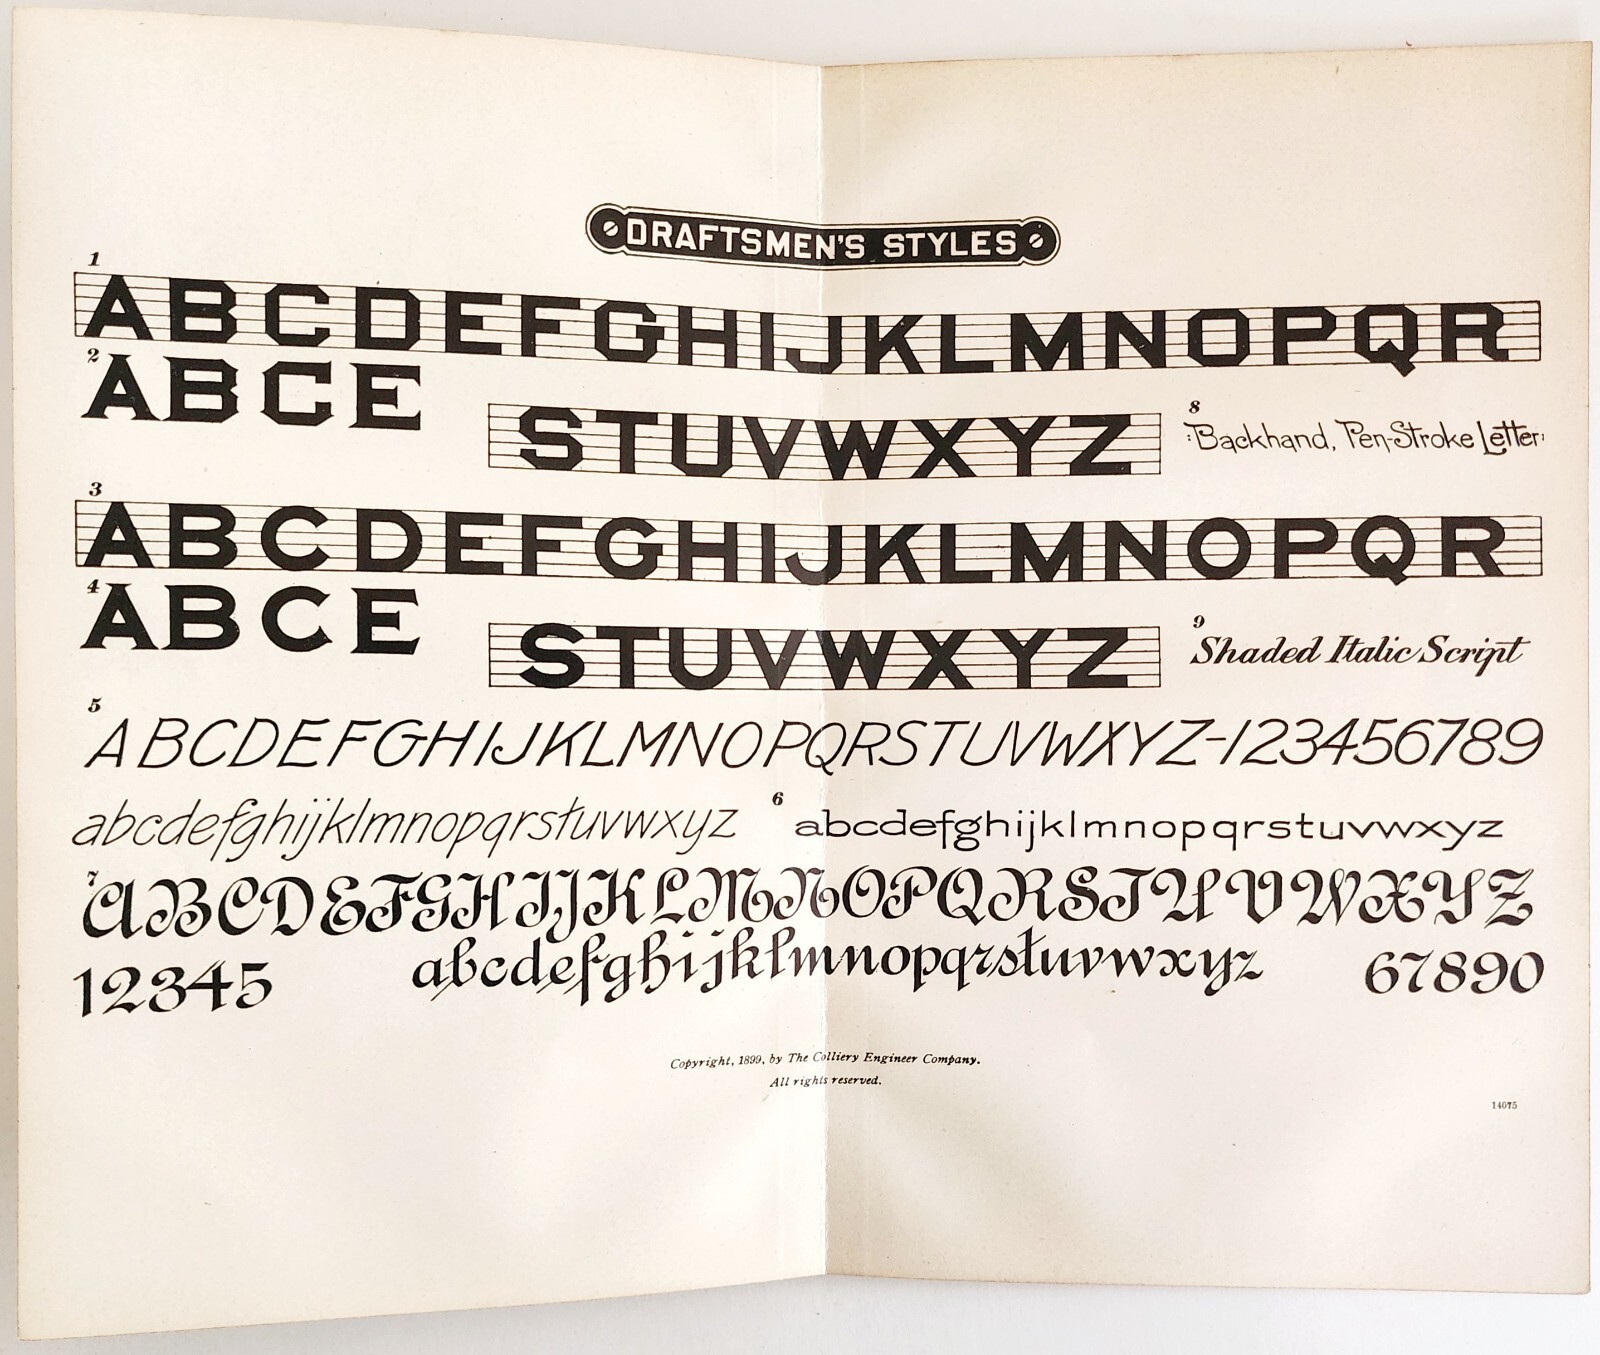 DRAFTSMEN'S STYLES
1
ABCDEFGHIJKLMNOPQR
2
ABCE
STUVWXYZ
8
Backhand, Pen-Stroke Letter
3
ABCDEFGHIJKLMNOPQR
4
ABCE
STUVWXYZ
9
Shaded Italic Script
5
ABCDEFGHIJKLMNOPQRSTUVWXYZ-123456789
abcdefghijklmnopqrstuvwxyz
6
abcdefghijklmnopqrstuvwxyz
7
ABCDEFGHIJKLMNOPQRSTUVWXYZ
12345
abcdefghijklmnopqrstuvwxyz
67890
Copyright, 1899, by The Colliery Engineer Company.
All rights reserved.
14675